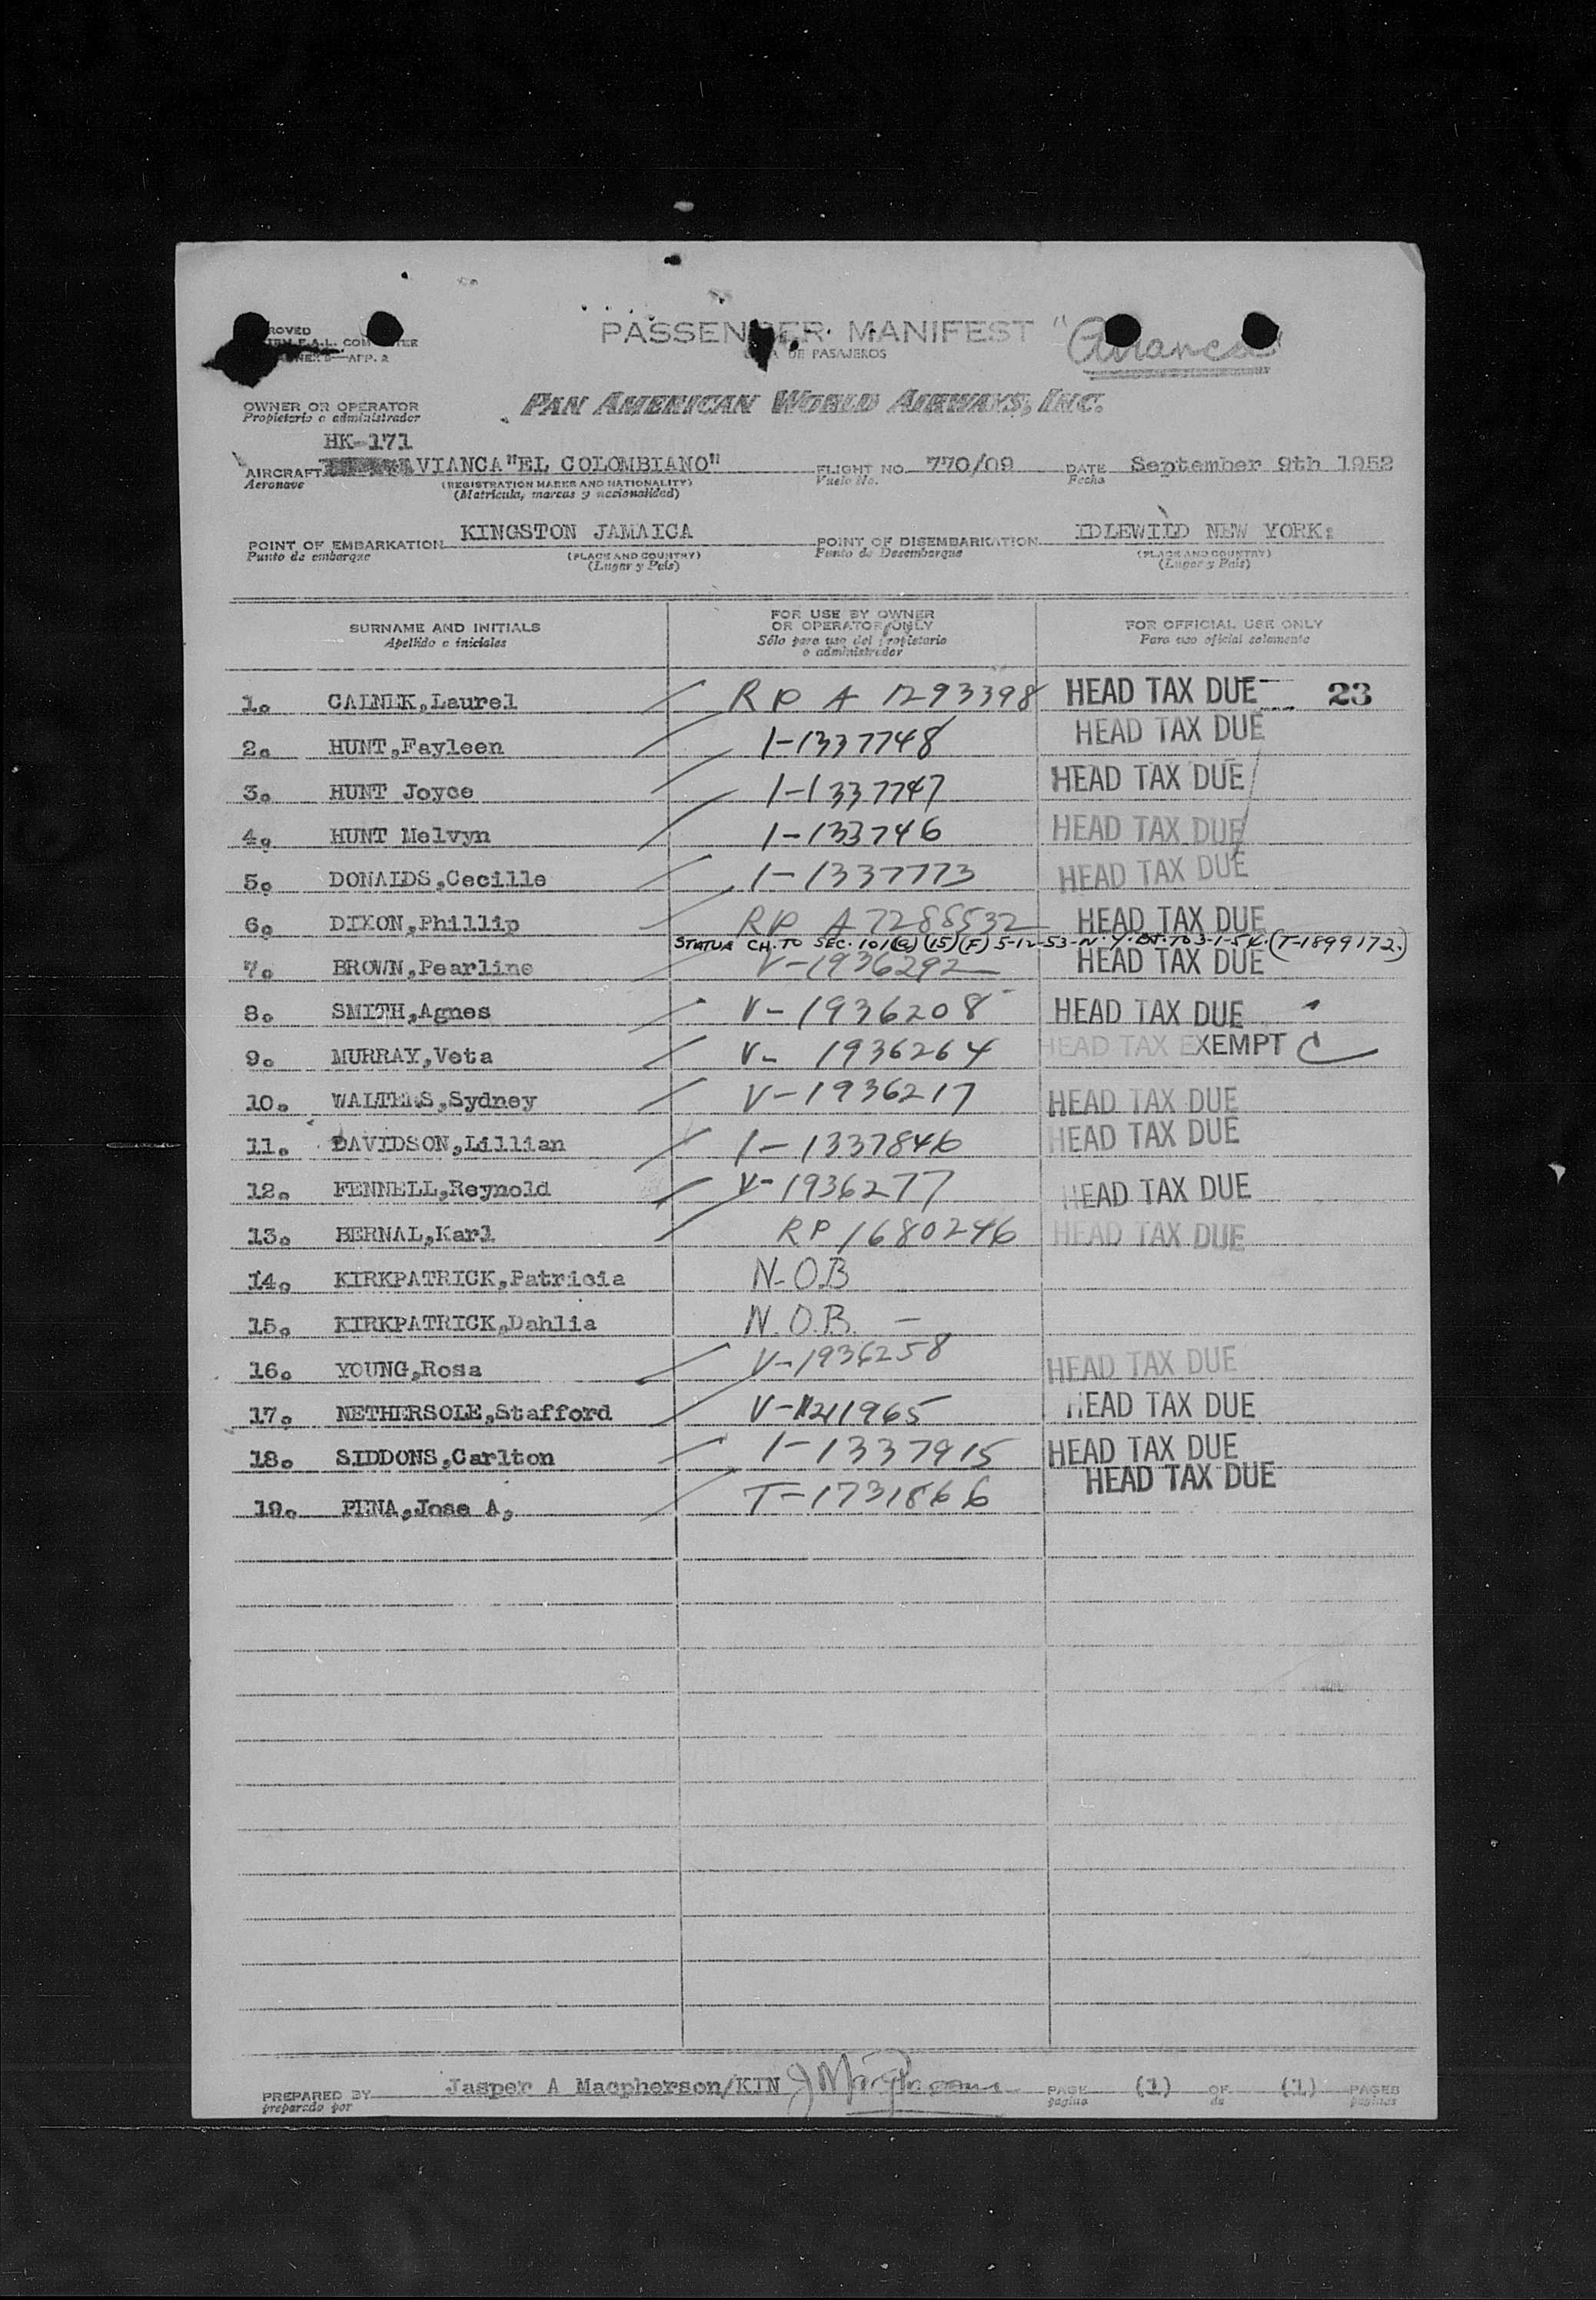 PASSENGER MANIFEST "Avianca"
DE PASAJEROS
PAN AMERICAN WORLD AIRWAYS, INC.
OWNER OR OPERATOR
Propietario o administrador
HK-171
AIRCRAFT AVIANCA "EL COLOMBIANO" FLIGHT NO. 770/09 DATE September 9th 1952
Aeronave (REGISTRATION MARKS AND NATIONALITY) Vuelo No. Fecha
(Matrícula, marcas y nacionalidad)
POINT OF EMBARKATION KINGSTON JAMAICA POINT OF DISEMBARKATION IDLEWILD NEW YORK:
Punto de embarque (PLACE AND COUNTRY) Punto de Desembarque (PLACE AND COUNTRY)
(Lugar y País) (Lugar y País)
SURNAME AND INITIALS FOR USE BY OWNER OR OPERATOR ONLY FOR OFFICIAL USE ONLY
Apellido e iniciales Sólo para uso del propietario o administrador Para uso oficial solamente
1. CALNEK,Laurel RP A 7293398 HEAD TAX DUE 23
2. HUNT,Fayleen I-1337748 HEAD TAX DUE
3. HUNT Joyce I-1337747 HEAD TAX DUE
4. HUNT Melvyn I-133746 HEAD TAX DUE
5. DONALDS,Cecille I-1337773 HEAD TAX DUE
6. DIXON,Phillip RP A7288532 HEAD TAX DUE
STATUS CH. TO SEC. 101(a)(15)(F) 5-12-53-N.Y. EXT. TO 3-1-54. (T-1899172.)
7. BROWN,Pearline V-1936292 HEAD TAX DUE
8. SMITH,Agnes V-1936208 HEAD TAX DUE
9. MURRAY,Veta V-1936264 HEAD TAX EXEMPT C
10. WALTERS,Sydney V-1936217 HEAD TAX DUE
11. DAVIDSON,Lillian I-1337846 HEAD TAX DUE
12. FENNELL,Reynold V-1936277 HEAD TAX DUE
13. BERNAL,Karl RP 1680246 HEAD TAX DUE
14. KIRKPATRICK,Patricia N.O.B
15. KIRKPATRICK,Dahlia N.O.B. -
16. YOUNG,Rosa V-1936258 HEAD TAX DUE
17. NETHERSOLE,Stafford V-1241965 HEAD TAX DUE
18. SIDDONS,Carlton I-1337915 HEAD TAX DUE
19. PENA,Jose A, T-1731866 HEAD TAX DUE
PREPARED BY Jasper A Macpherson/KIN PAGE (1) OF (1) PAGES
preparado por página de páginas